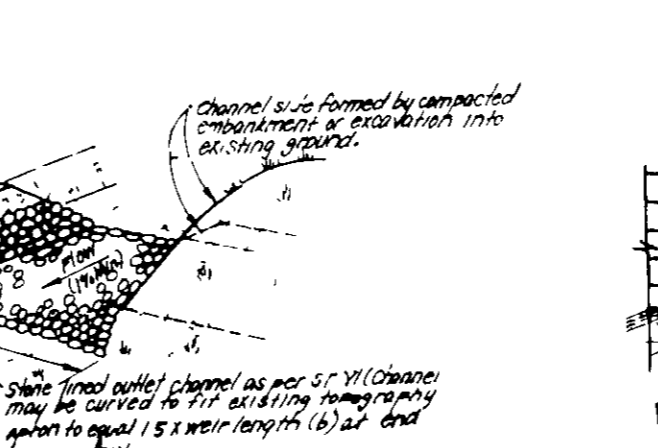 Channel side formed by compacted
embankment or excavation into
existing ground.
FLOW
(1% Min)
Stone lined outlet channel as per ST VI (Channel
may be curved to fit existing topography
apron to equal 1.5 x weir length (b) at end